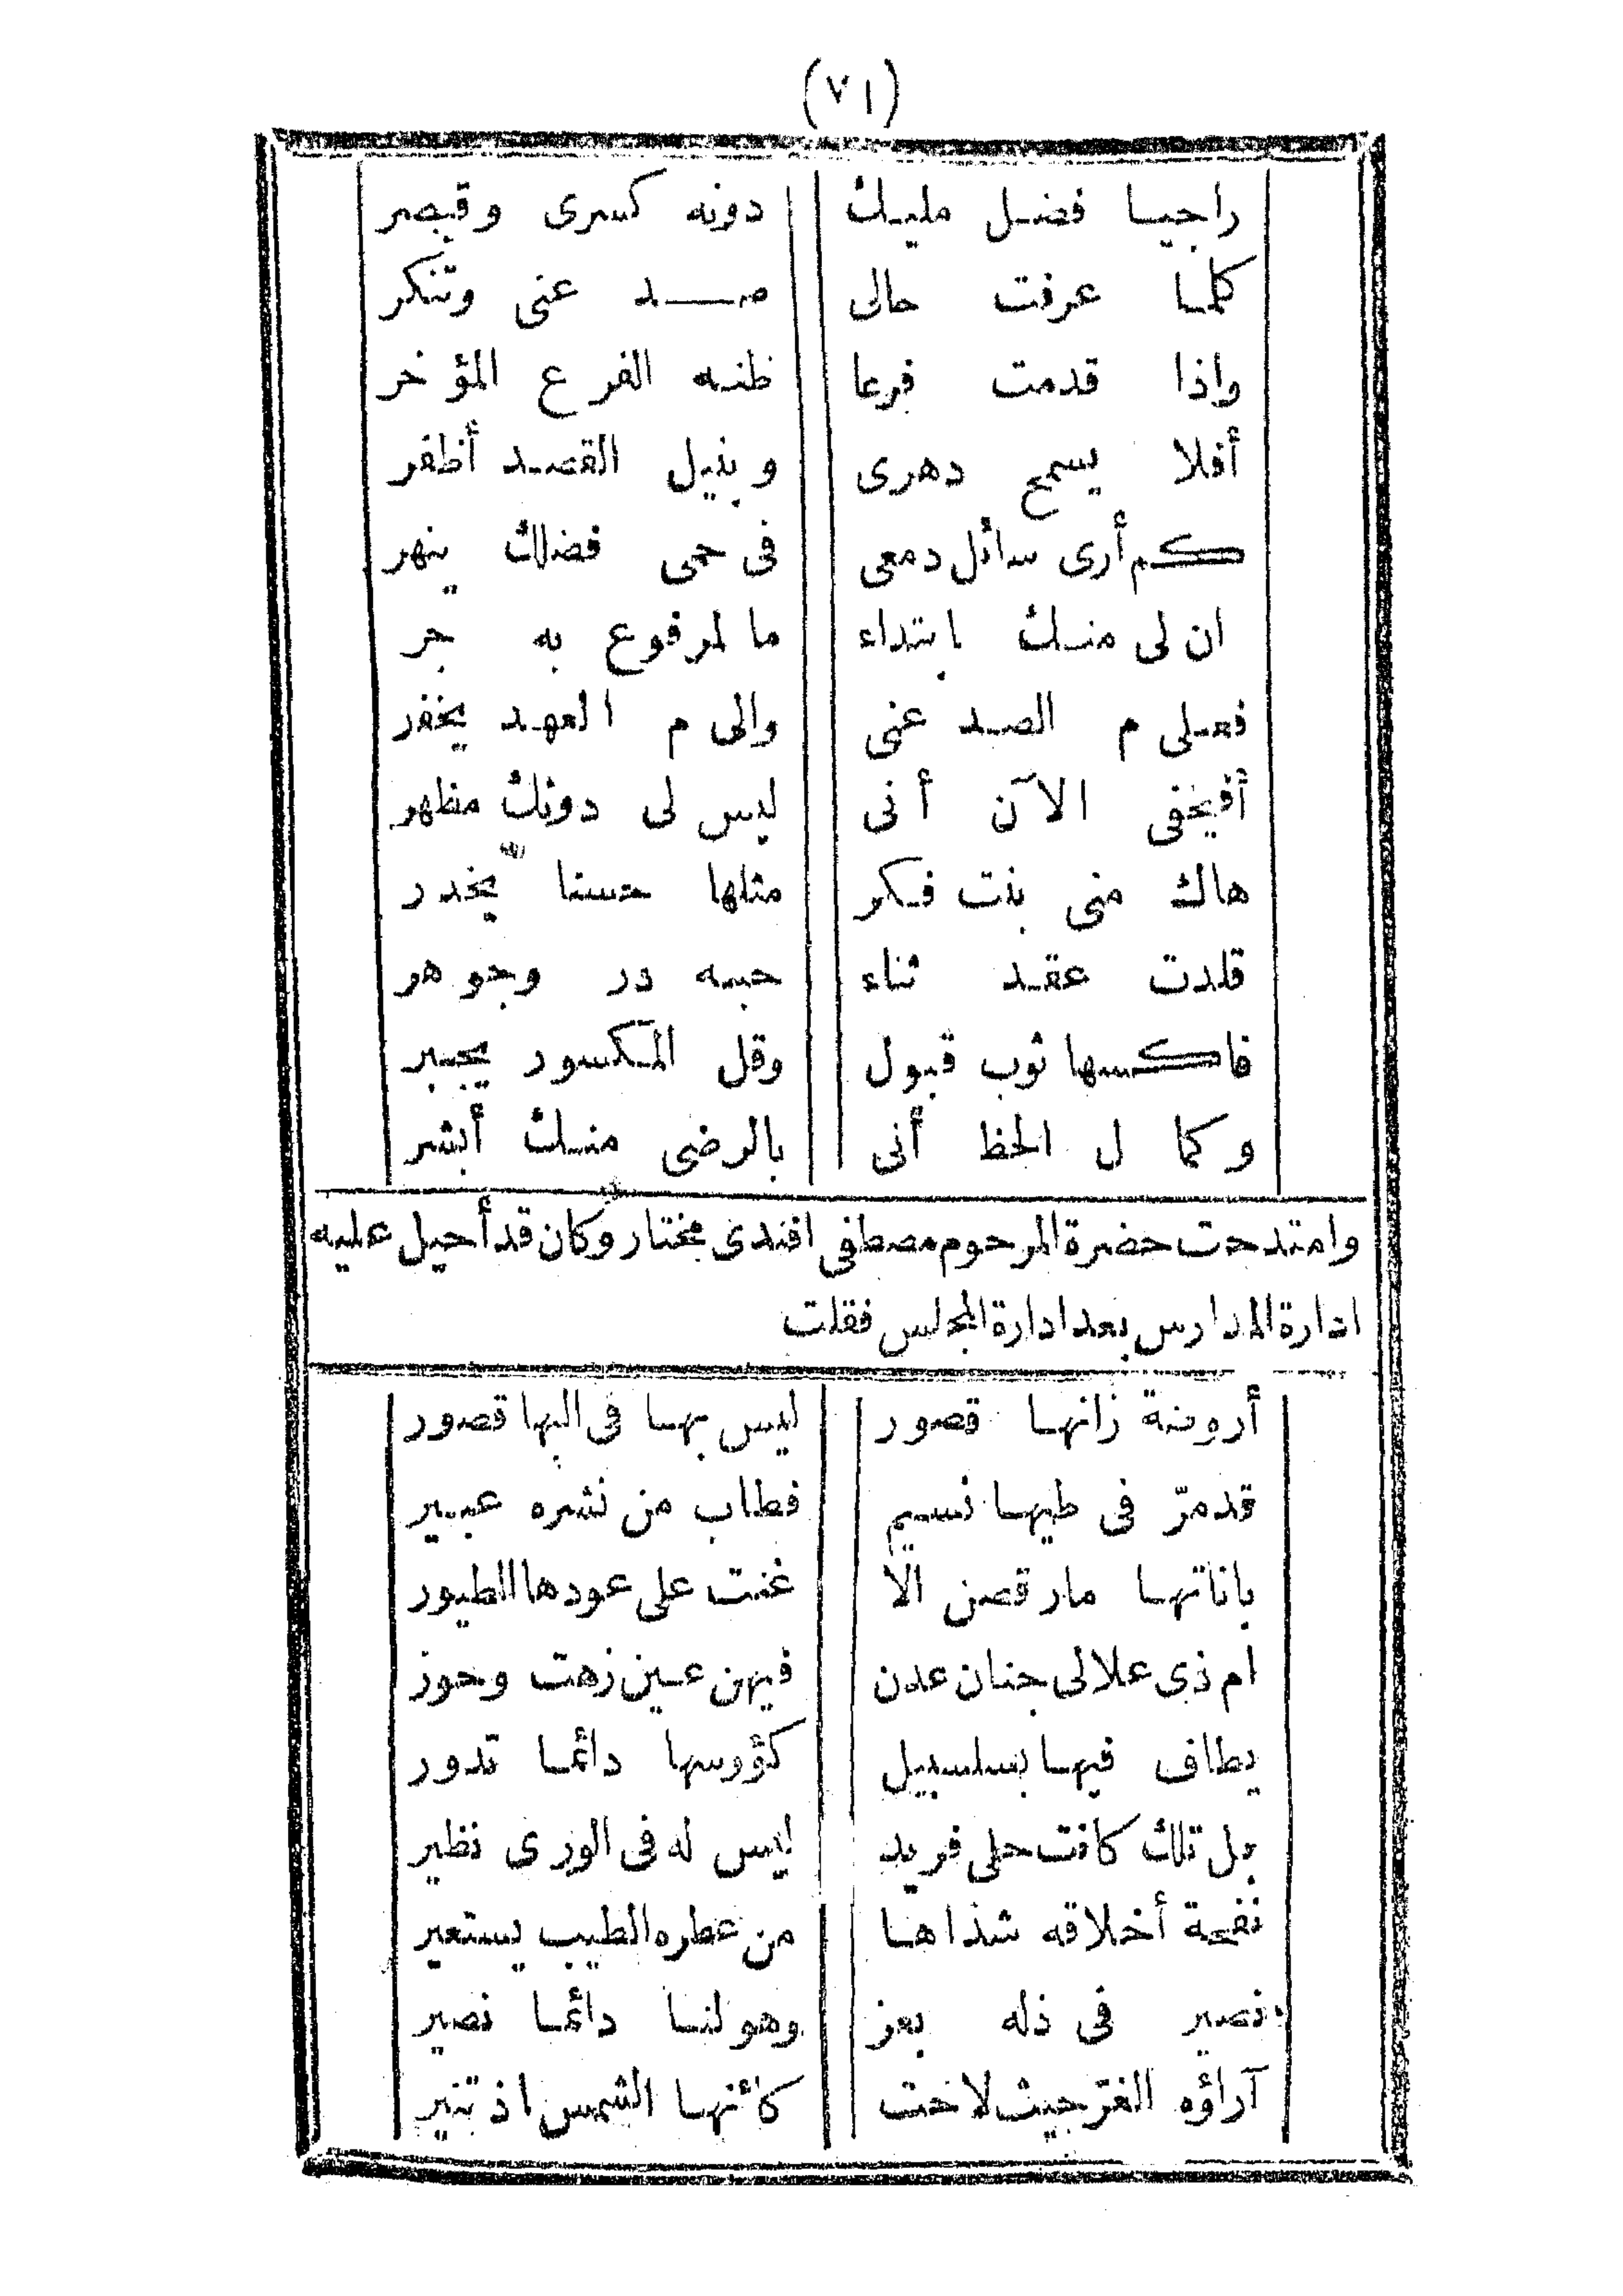 (٧١)
راجيا فضل مليك دونه كسرى وقيصر
كلما عرفت حالى صد عنى وتنكر
واذا قدمت فرعا ظنه الفرع المؤخر
أفلا يسمح دهرى وبنيل القصد أظفر
كم أرى سائل دمعى فى حمى فضلك ينهر
ان لى منك ابتداء ما لمرفوع به جر
فعلى م الصد عنى والى م العهد يخفر
أفيخفى الآن أنى ليس لى دونك مظهر
هاك منى بنت فكر مثلها حسنا يخدر
قلدت عقد ثناء حبه در وجوهر
فاكسها ثوب قبول وقل المكسور يجبر
وكمال الحظ أنى بالرضى منك أبشر
وامتدحت حضرة المرحوم مصطفى افندى مختار وكان قد أحيل عليه
ادارة المدارس بعد ادارة المجلس فقلت
أروضة زانها قصور ليس بها فى البها قصور
قد مرّ فى طيها نسيم فطاب من نشره عبير
باناتها مارقصن الا غنت على عودها الطيور
ام ذى علالى جنان عدن فيهن عين زهت وحور
يطاف فيها بسلسبيل كؤوسها دائما تدور
بل تلك كانت حلى فريد ليس له فى الورى نظير
نفحة أخلاقه شذاها من عطره الطيب يستعير
نصير فى ذله بعز وهو لنا دائما نصير
آراؤه الغرّ حيث لاحت كأنها الشمس اذ تنير